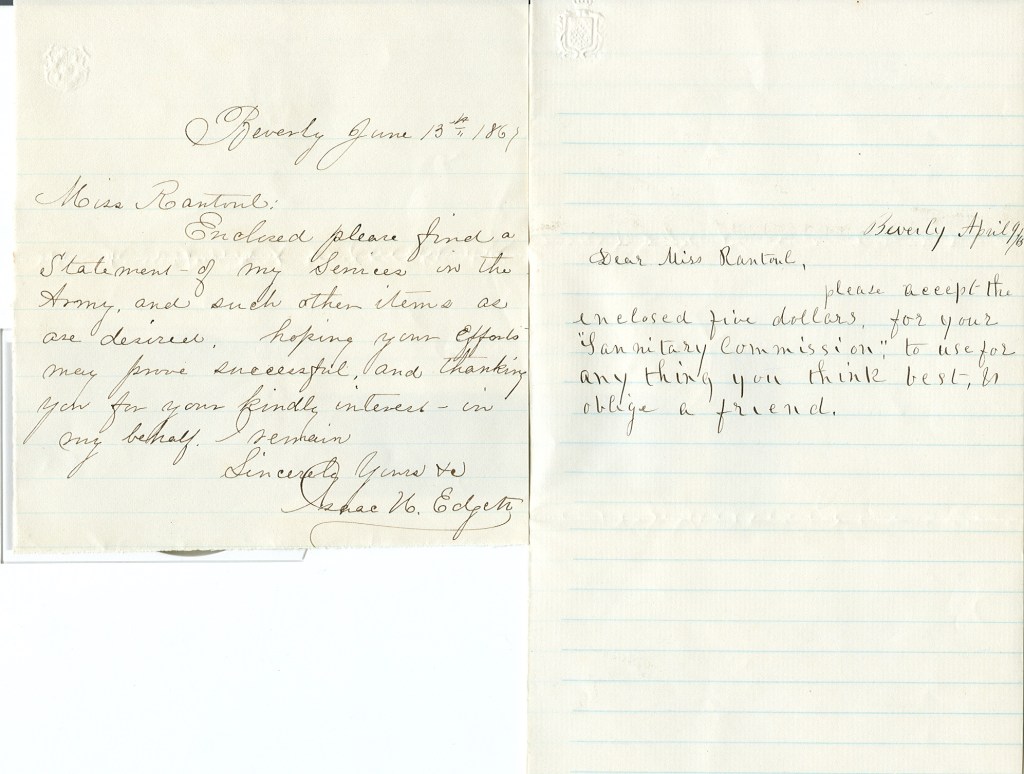 Beverly June 13th 186
Miss Rantoul:
Enclosed please find a
Statement of my Services in the
Army, and such other items as
are desired. hoping your Efforts
may prove successful, and thanking
you for your kindly interest - in
my behalf. I remain
Sincerely Yours &c
Isaac H. Edgett
Beverly April 9/
Dear Miss Rantoul,
please accept the
enclosed five dollars, for your
"Sannitary Commission", to use for
any thing you think best, &
oblige a friend.